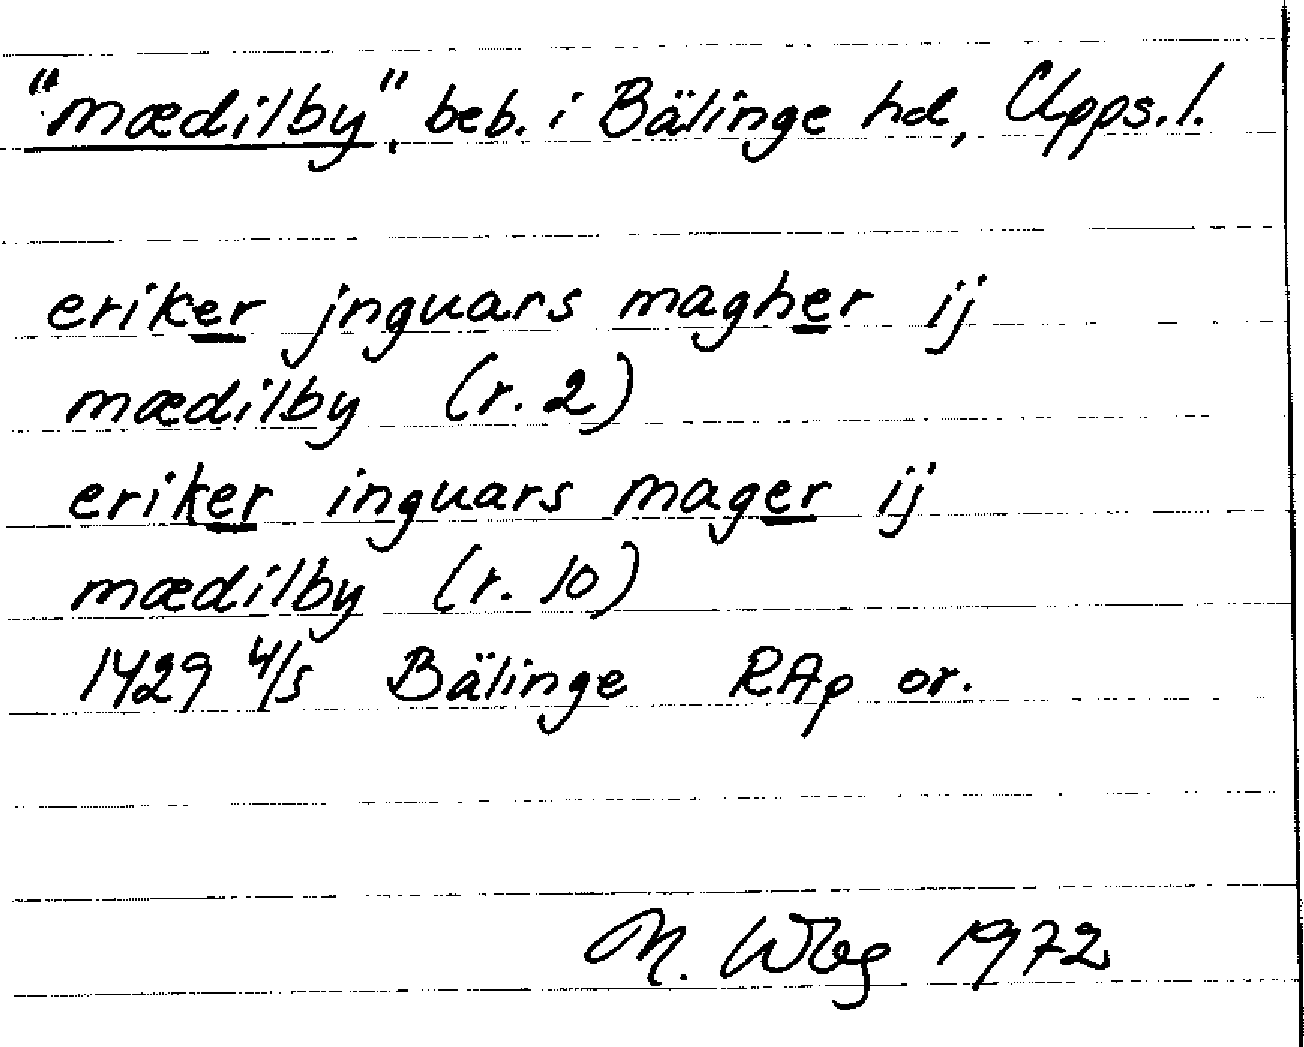 "mædilby", beb. i Bälinge hd, Upps. l.
eriker jnguars magher ij
mædilby (r. 2)
eriker inguars mager ij
mædilby (r. 10)
1429 4/5 Bälinge RAp or.
M. Wbg 1972